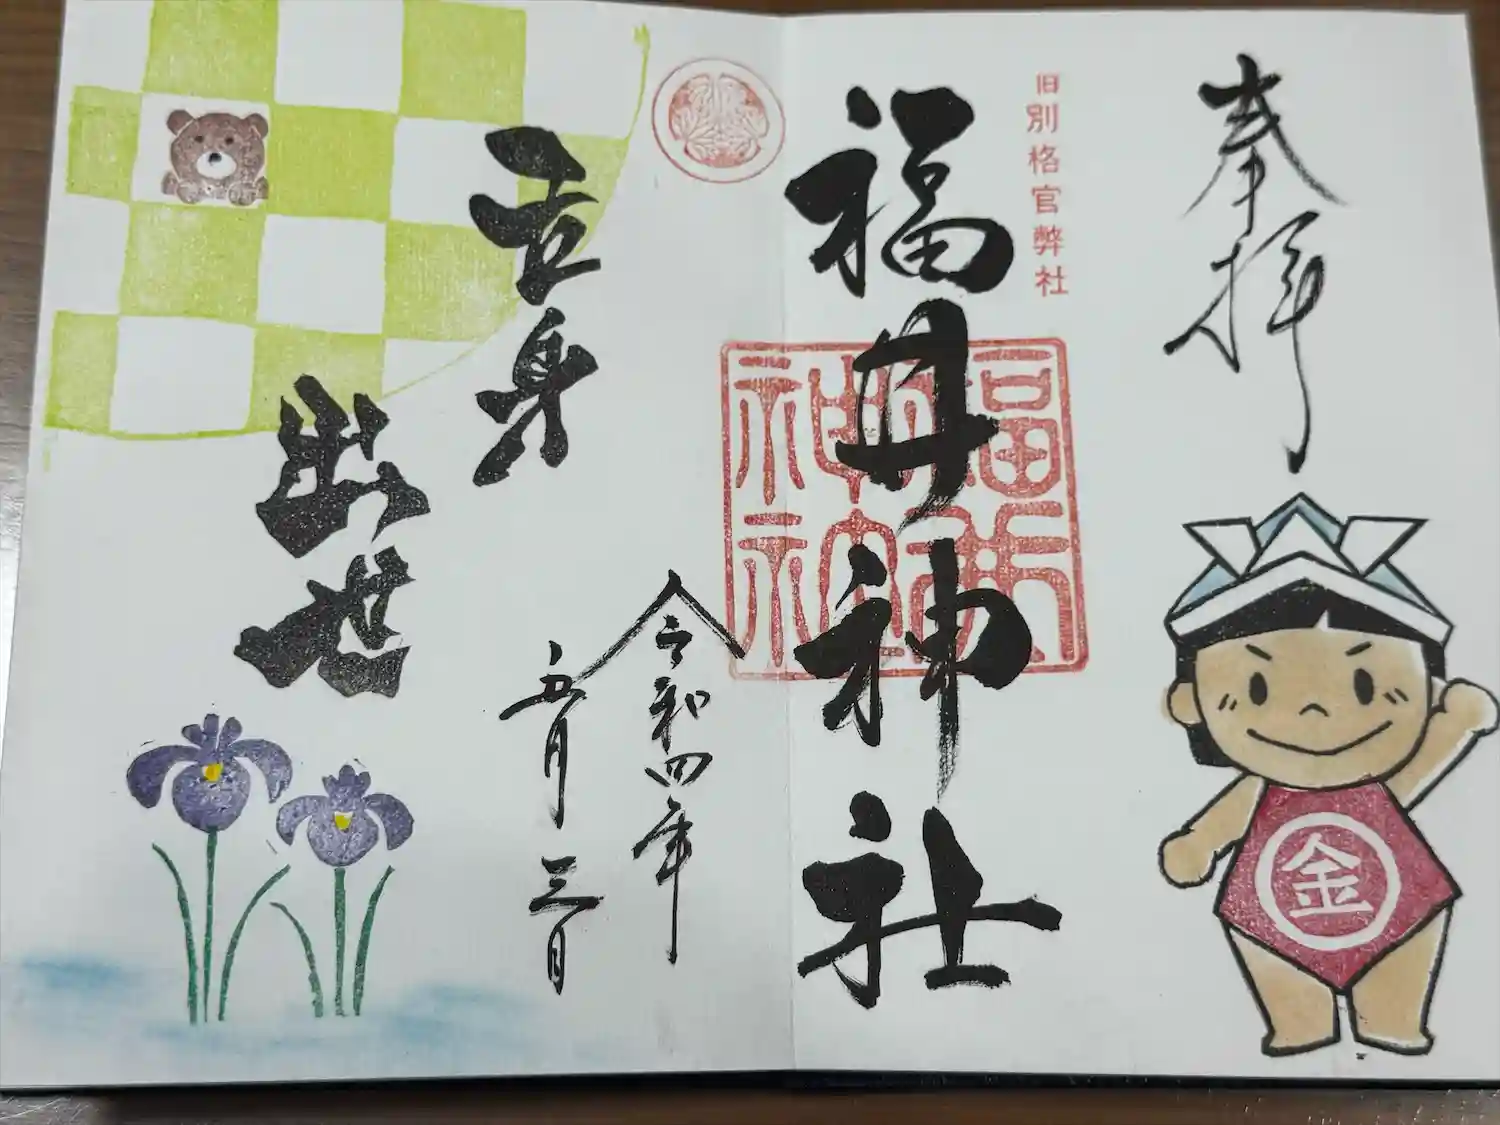 奉拝
金
旧別格官弊社
福井神社
令和四年
五月三日
立身
出世